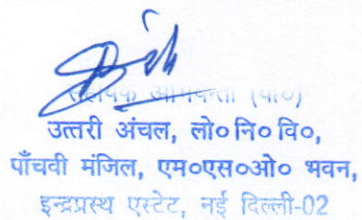 सहायक अभियन्ता (वि०)
उत्तरी अंचल, लो०नि०वि०,
पाँचवी मंजिल, एम०एस०ओ० भवन,
इन्द्रप्रस्थ एस्टेट, नई दिल्ली-02